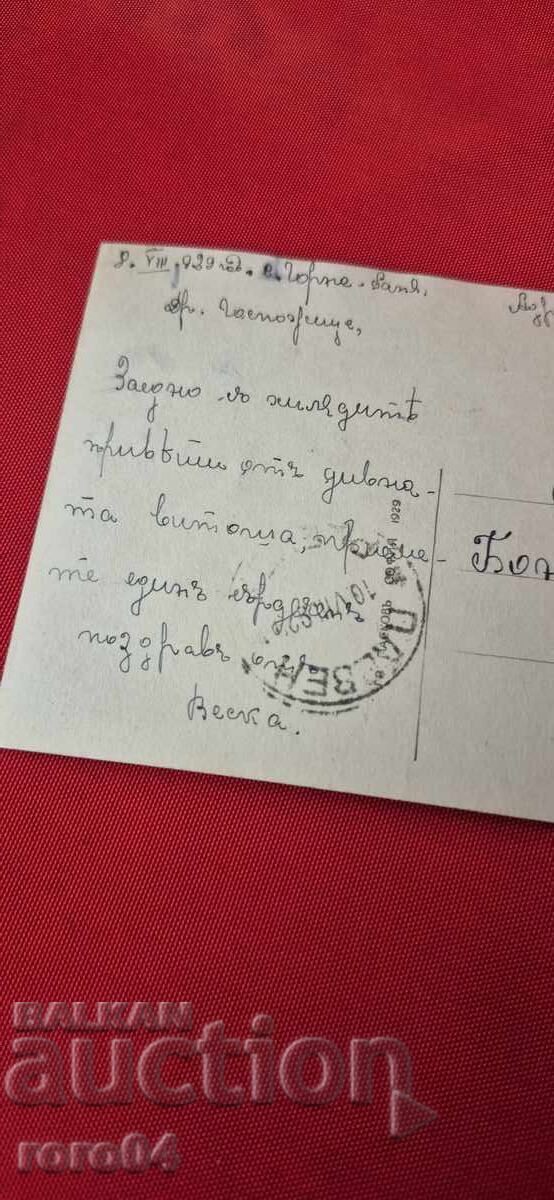 8. VIII. 929 год. с. Горна-Баня.
Др. Госпожице,
Заедно съ хилядитѣ
привѣти отъ дивна-
та Витоша, приеме-
те единъ сърдеченъ
поздравъ отъ
Веска.
ПЛѢВЕН
1929
BALKAN
auction
roro04